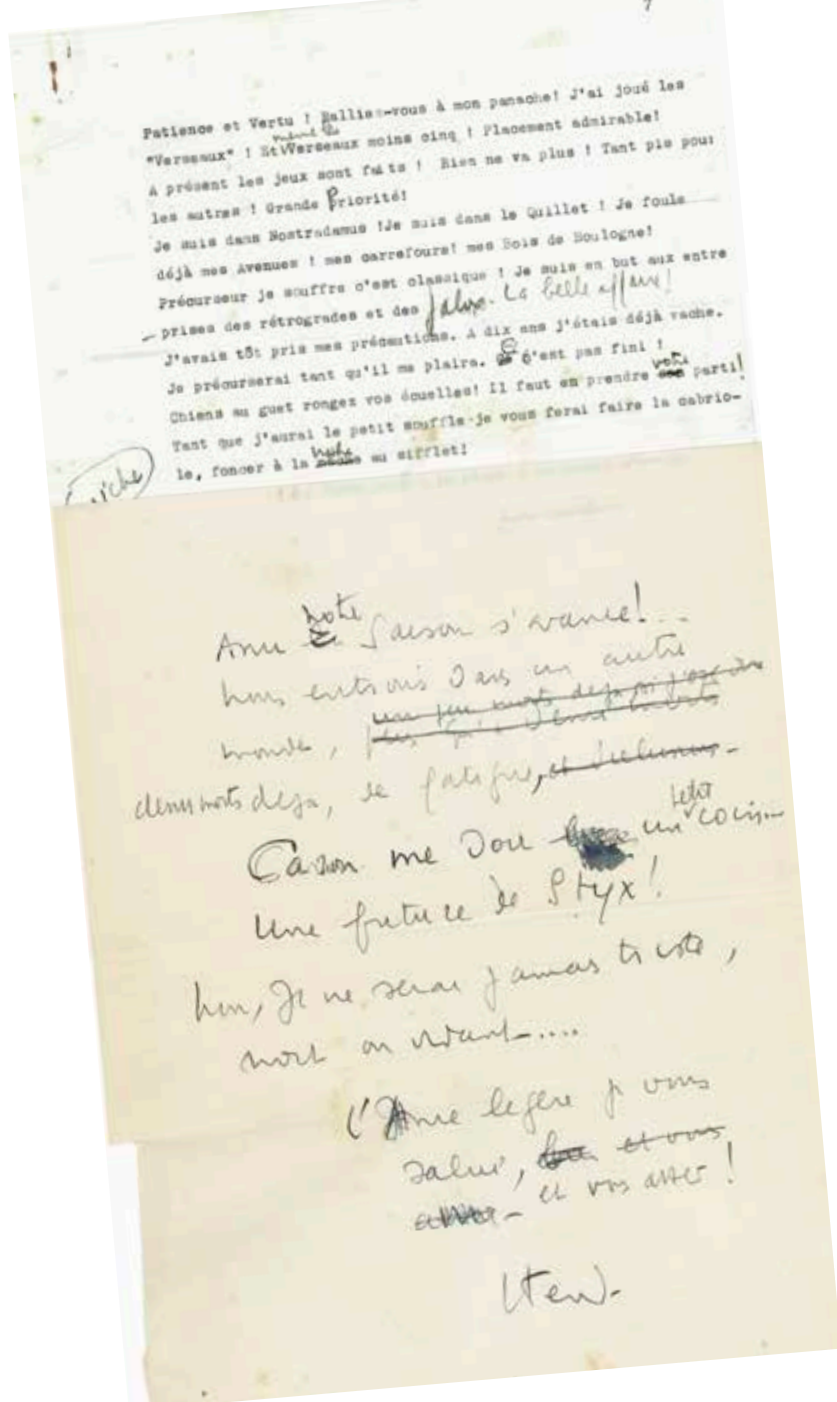 7
Patience et Vertu ! Ralliez-vous à mon panache! J'ai joué les
même les
"Verseaux" ! Et Verseaux moins cinq ! Placement admirable!
A présent les jeux sont faits ! Rien ne va plus ! Tant pis pour
les autres ! Grande Priorité!
Je suis dans Nostradamus !Je suis dans le Quillet ! Je foule
déjà mes Avenues ! mes carrefours! mes Bois de Boulogne!
Précurseur je souffre c'est classique ! Je suis en but aux entre
prises des rétrogrades et des jaloux. La belle affaire!
J'avais tôt pris mes précautions. A dix ans j'étais déjà vache.
Je précurserai tant qu'il me plaira. C'est pas fini !
Chiens au guet rongez vos écuelles! Il faut en prendre votre parti!
Tant que j'aurai le petit souffle je vous ferai faire la cabrio-
le, foncer à la niche au sifflet!
niche
notre
Ami saison s'avance!..
nous entrons dans un autre
monde,
demi morts déjà, de fatigue,
petit
Caron me doit un coussin
Une friture de Styx!
Non, Je ne serai jamais triste,
mort ou vivant....
L'Ame légère je vous
salue, et vous
et vos astres !